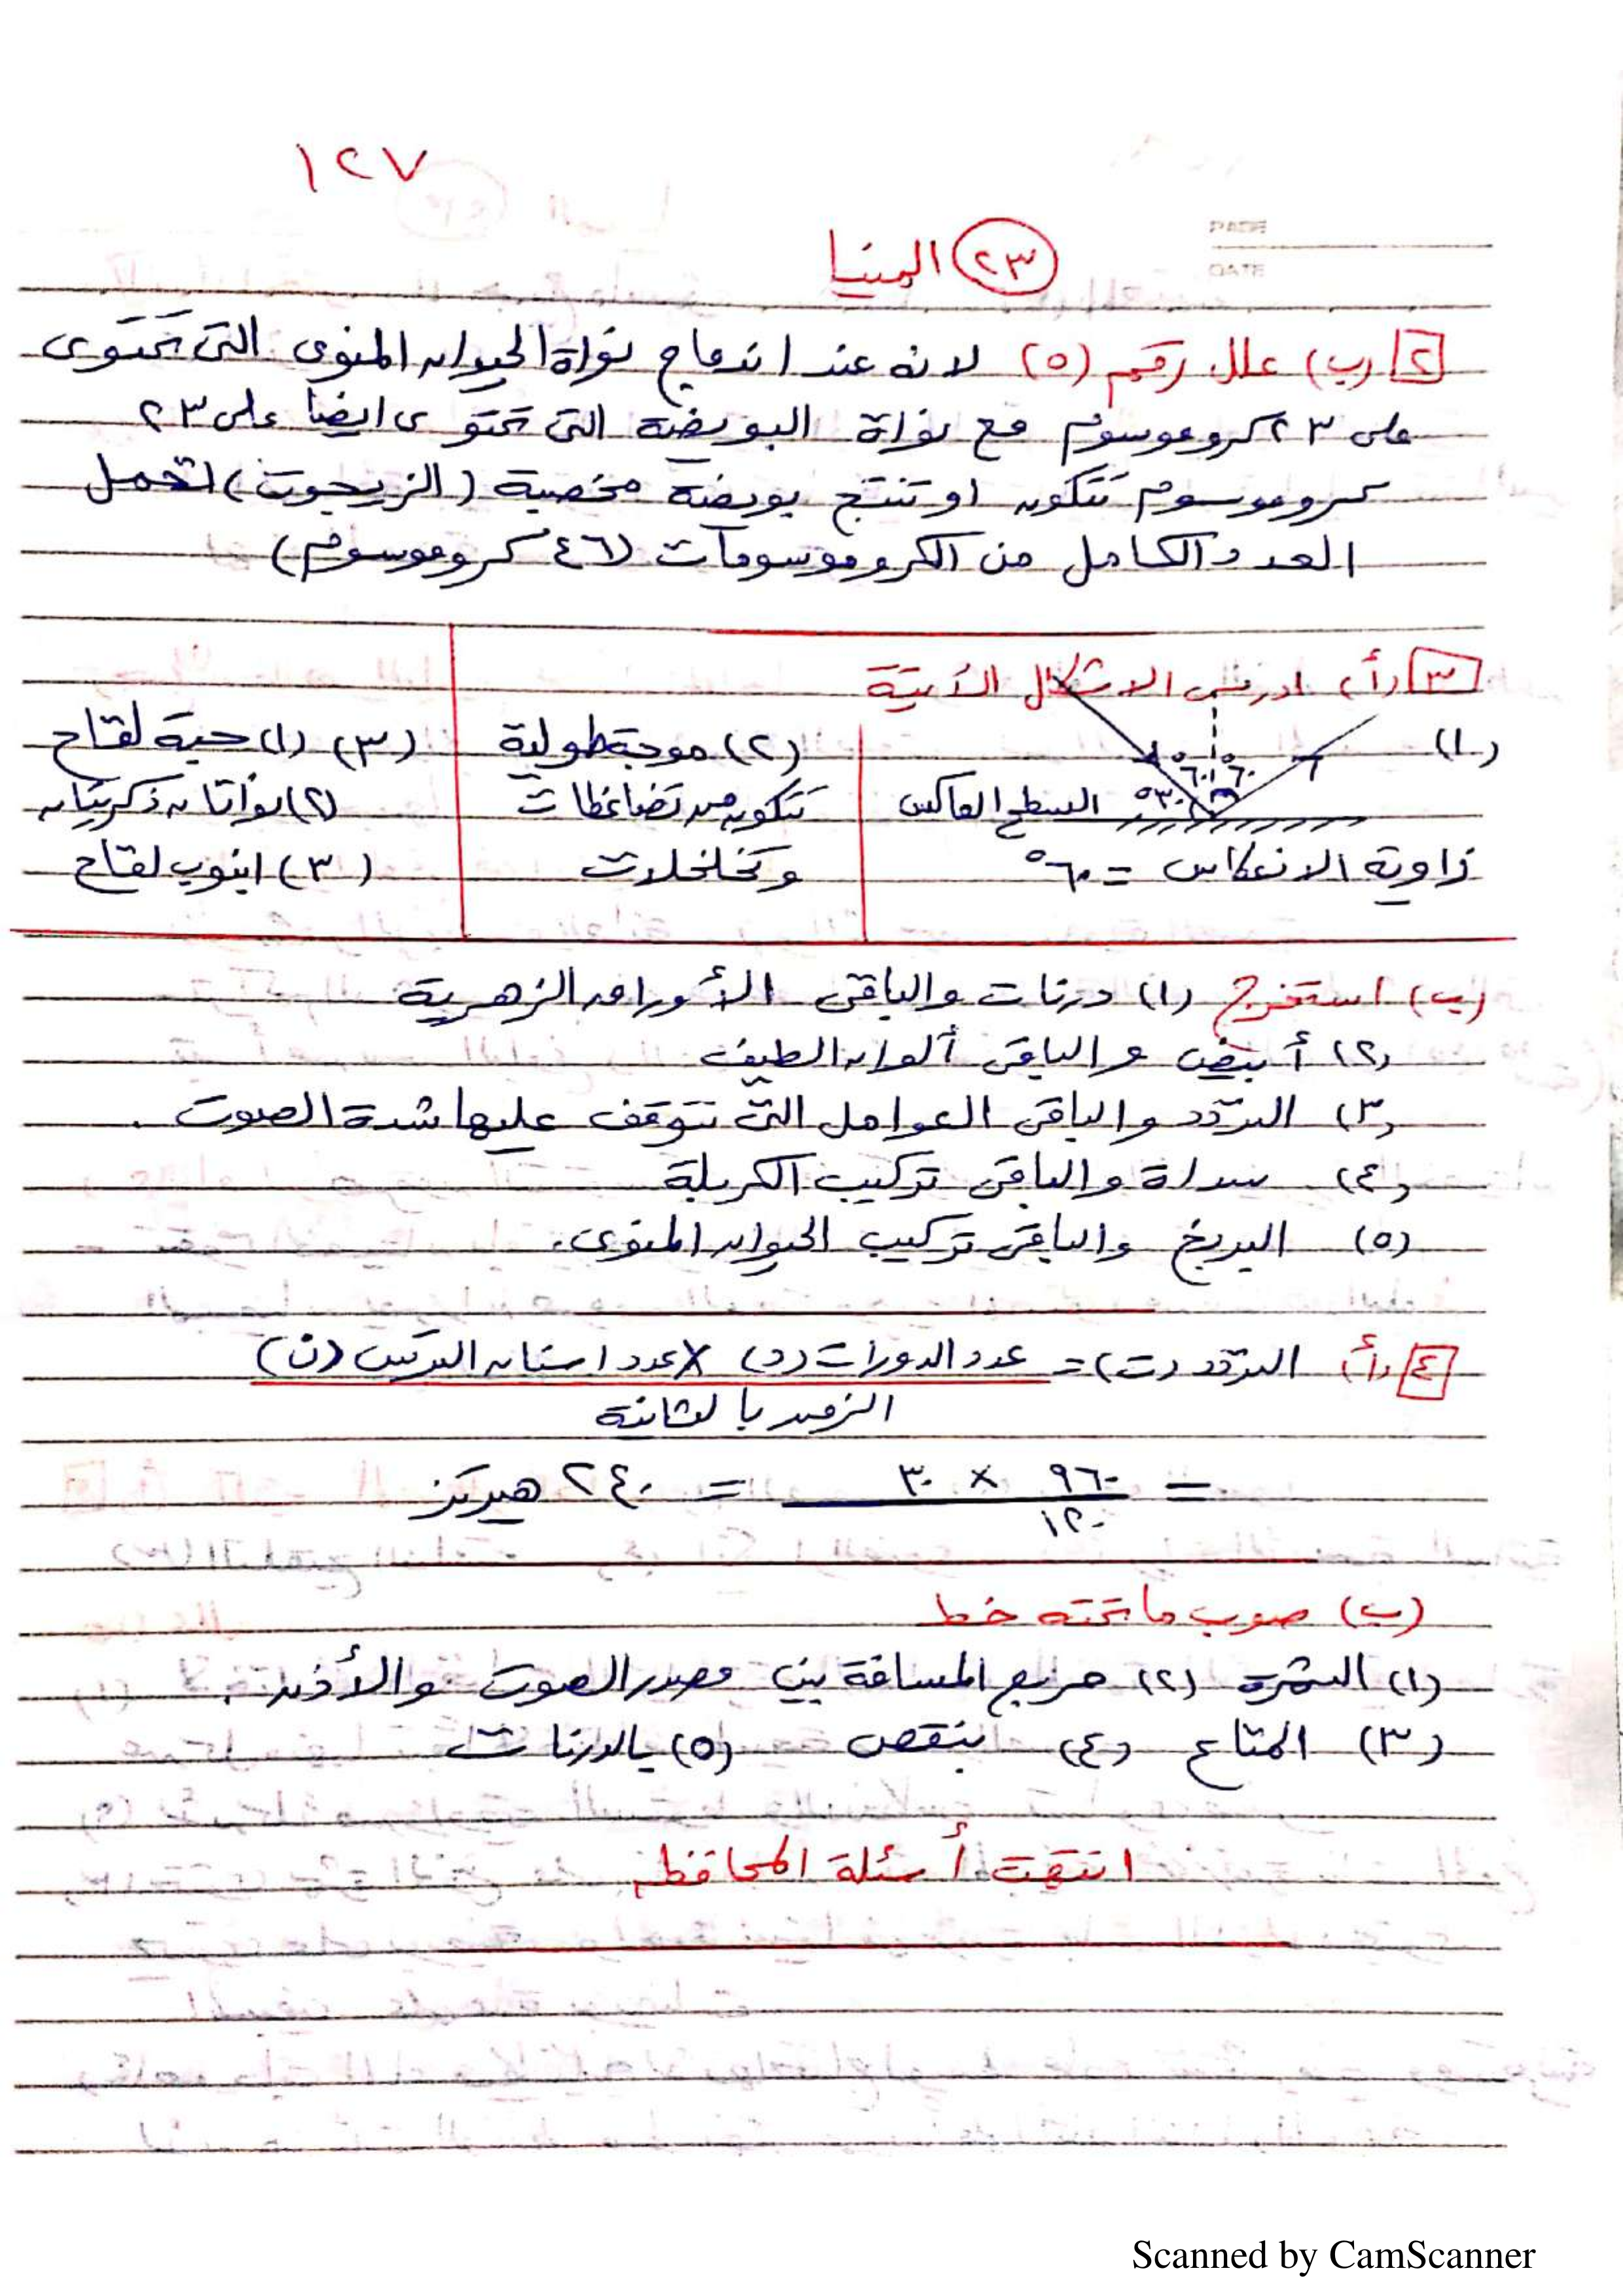 ١٢٧
PAGE
DATE
٢٣ المنيا
٢ (ب) علل رقم (٥) لانه عند اندماج نواة الحيوان المنوى التى تحتوى
على ٢٣ كروموسوم مع نواة البويضة التى تحتوى ايضا على ٢٣
كروموسوم تتكون او تنتج بويضة مخصبة (الزيجوت) لتحمل
العدد الكامل من الكروموسومات (٤٦ كروموسوم)
٣ (أ) ادرس الاشكال الآتية
(١)
٦٠° ٦٠°
٣٠° السطح العاكس
زاوية الانعكاس = ٦٠°
(٢) موجة طولية
تتكون من تضاغطات
وتخلخلات
(٣) (١) حبة لقاح
(٢) نواتان ذكريتان
(٣) انبوب لقاح
(ب) استخرج (١) درنات والباقى الأوراق الزهرية
(٢) أبيض والباقى ألوان الطيف
(٣) التردد والباقى العوامل التى تتوقف عليها شدة الصوت .
(٤) سداة والباقى تركيب الكربلة
(٥) البربخ والباقى تركيب الحيوان المنوى.
٤ (أ) التردد (ت) = عدد الدورات (د) × عدد اسنان الترس (ن)
الزمن بالثانية
= ٩٦٠ × ٣٠ = ٢٤٠ هيرتز
١٢٠
(ب) صوب ما تحته خط
(١) الثمرة (٢) مربع المسافة بين مصدر الصوت والأذن .
(٣) المتاع (٤) ينقص (٥) بالدرنات
انتهت أسئلة المحافظة
Scanned by CamScanner